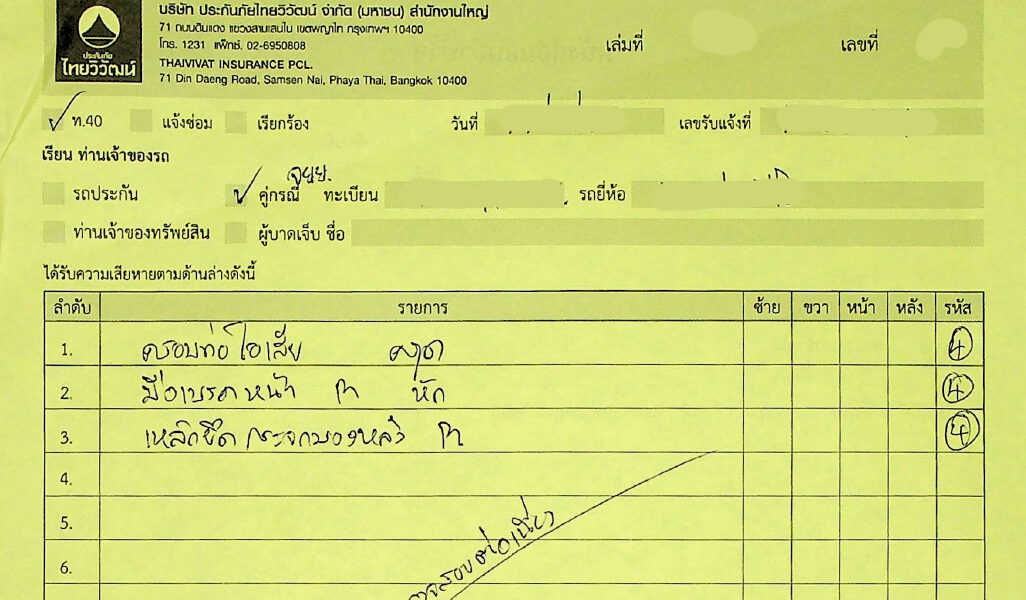 บริษัท ประกันภัยไทยวิวัฒน์ จำกัด (มหาชน) สำนักงานใหญ่
71 ถนนดินแดง แขวงสามเสนใน เขตพญาไท กรุงเทพฯ 10400
โทร. 1231 แฟ็กซ์. 02-6950808
THAIVIVAT INSURANCE PCL.
71 Din Daeng Road, Samsen Nai, Phaya Thai, Bangkok 10400
ประกันภัย
ไทยวิวัฒน์
เล่มที่ เลขที่
ท.40 แจ้งซ่อม เรียกร้อง วันที่ เลขรับแจ้งที่
เรียน ท่านเจ้าของรถ
จยย.
รถประกัน คู่กรณี ทะเบียน รถยี่ห้อ
ท่านเจ้าของทรัพย์สิน ผู้บาดเจ็บ ชื่อ
ได้รับความเสียหายตามด้านล่างดังนี้
ลำดับ รายการ ซ้าย ขวา หน้า หลัง รหัส
1. ครอบท่อไอเสีย 4
2. มือเบรคหน้า R หัก 4
3. เหล็กยึดกระจกมองหลัง R 4
4.
5.
6.
ตรวจสอบต่อเนื่อง